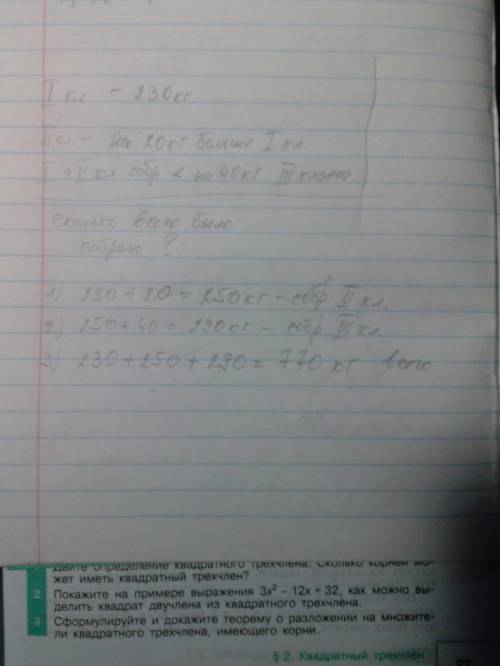 I кл - 230 кг.
II кл - на 20 кг больше I кл
I + II кл собр < на 40 кг III класса.
сколько всего было
собрано ?
1) 230 + 20 = 250 кг - собр II кл.
2) 250 + 40 = 290 кг - собр III кл.
3) 230 + 250 + 290 = 770 кг всего
Дайте определение квадратного трехчлена. Сколько корней мо-
жет иметь квадратный трехчлен?
2 Покажите на примере выражения 3x² – 12x + 32, как можно вы-
делить квадрат двучлена из квадратного трехчлена.
3 Сформулируйте и докажите теорему о разложении на множите-
ли квадратного трехчлена, имеющего корни.
§ 2. Квадратный трехчлен